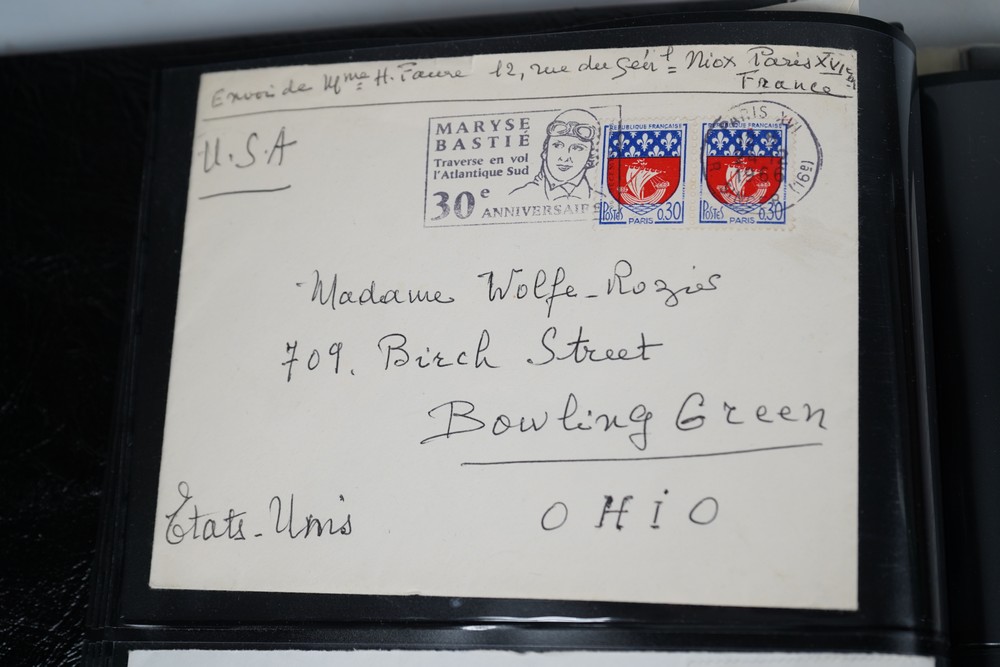 Envoi de Mme H. Faure 12, rue du Génl Niox Paris XVIe
France
U.S.A
MARYSE
BASTIÉ
Traverse en vol
l'Atlantique Sud
30e ANNIVERSAIRE
REPUBLIQUE FRANÇAISE
POSTES PARIS 0,30
REPUBLIQUE FRANÇAISE
POSTES PARIS 0,30
PARIS XVI
1966
(16E)
Madame Wolfe-Rozier
709. Birch Street
Bowling Green
États-Unis
OHiO